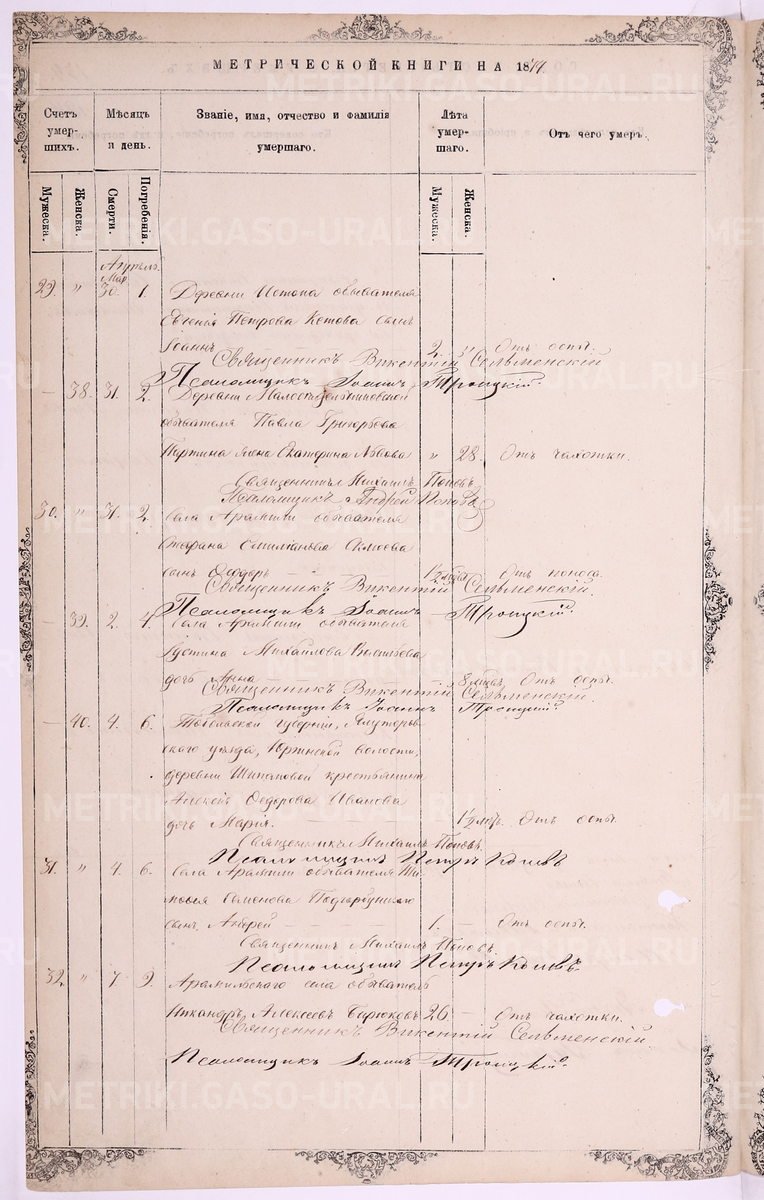 МЕТРИЧЕСКОЙ КНИГИ НА 18
Счетъ умершихъ.
Мѣсяцъ и день.
Званіе, имя, отчество и фамилія умершаго.
Лѣта умершаго.
Отъ чего умеръ.
Мужеска.
Женска.
Смерти.
Погребенія.
Мужеска.
Женска.
Апрѣль
Мар.
29. " 30. 1. Деревни Истока обывателя
Евгенія Петрова Кетова сынъ
Іоаннъ 2 " Отъ оспы.
Священникъ Викентій Сельменскій
Псаломщикъ Іоаннъ Троицкій.
— 38. 31. 2. Деревни
обывателя Павла Григорьева
жена Екатерина Львова " 28. Отъ чахотки.
Священникъ Михаилъ Поповъ
Псаломщикъ Андрей Поповъ
30. " 31. 2. Села Арамили обывателя
Стефана сынъ Ѳеодоръ Отъ поноса.
Священникъ Викентій Сельменскій
Псаломщикъ Іоаннъ Троицкій.
— 39. 2. 4. Села Арамили обывателя
Іустина Михайлова
дочь Анна 8 мѣс. Отъ оспы.
Священникъ Викентій Сельменскій.
Псаломщикъ Іоаннъ Троицкій.
— 40. 4. 6. Тобольской губерніи, Ялуторов-
скаго уѣзда, Юргинской волости,
деревни крестьянина
Алексія Ѳедорова Иванова
дочь Марія. 1½ Отъ оспы.
Священникъ Михаилъ Поповъ.
Псаломщикъ Петръ
31. " 4. 6. Села Арамили обывателя
Семенова
сынъ Андрей 1. — Отъ оспы.
Священникъ Михаилъ Поповъ.
Псаломщикъ Петръ
32. " 7. 9. Арамильскаго села обыватель
Никандръ Алексѣевъ 26 — Отъ чахотки.
Священникъ Викентій Сельменскій.
Псаломщикъ Іоаннъ Троицкій.
METRIKI.GASO-URAL.RU